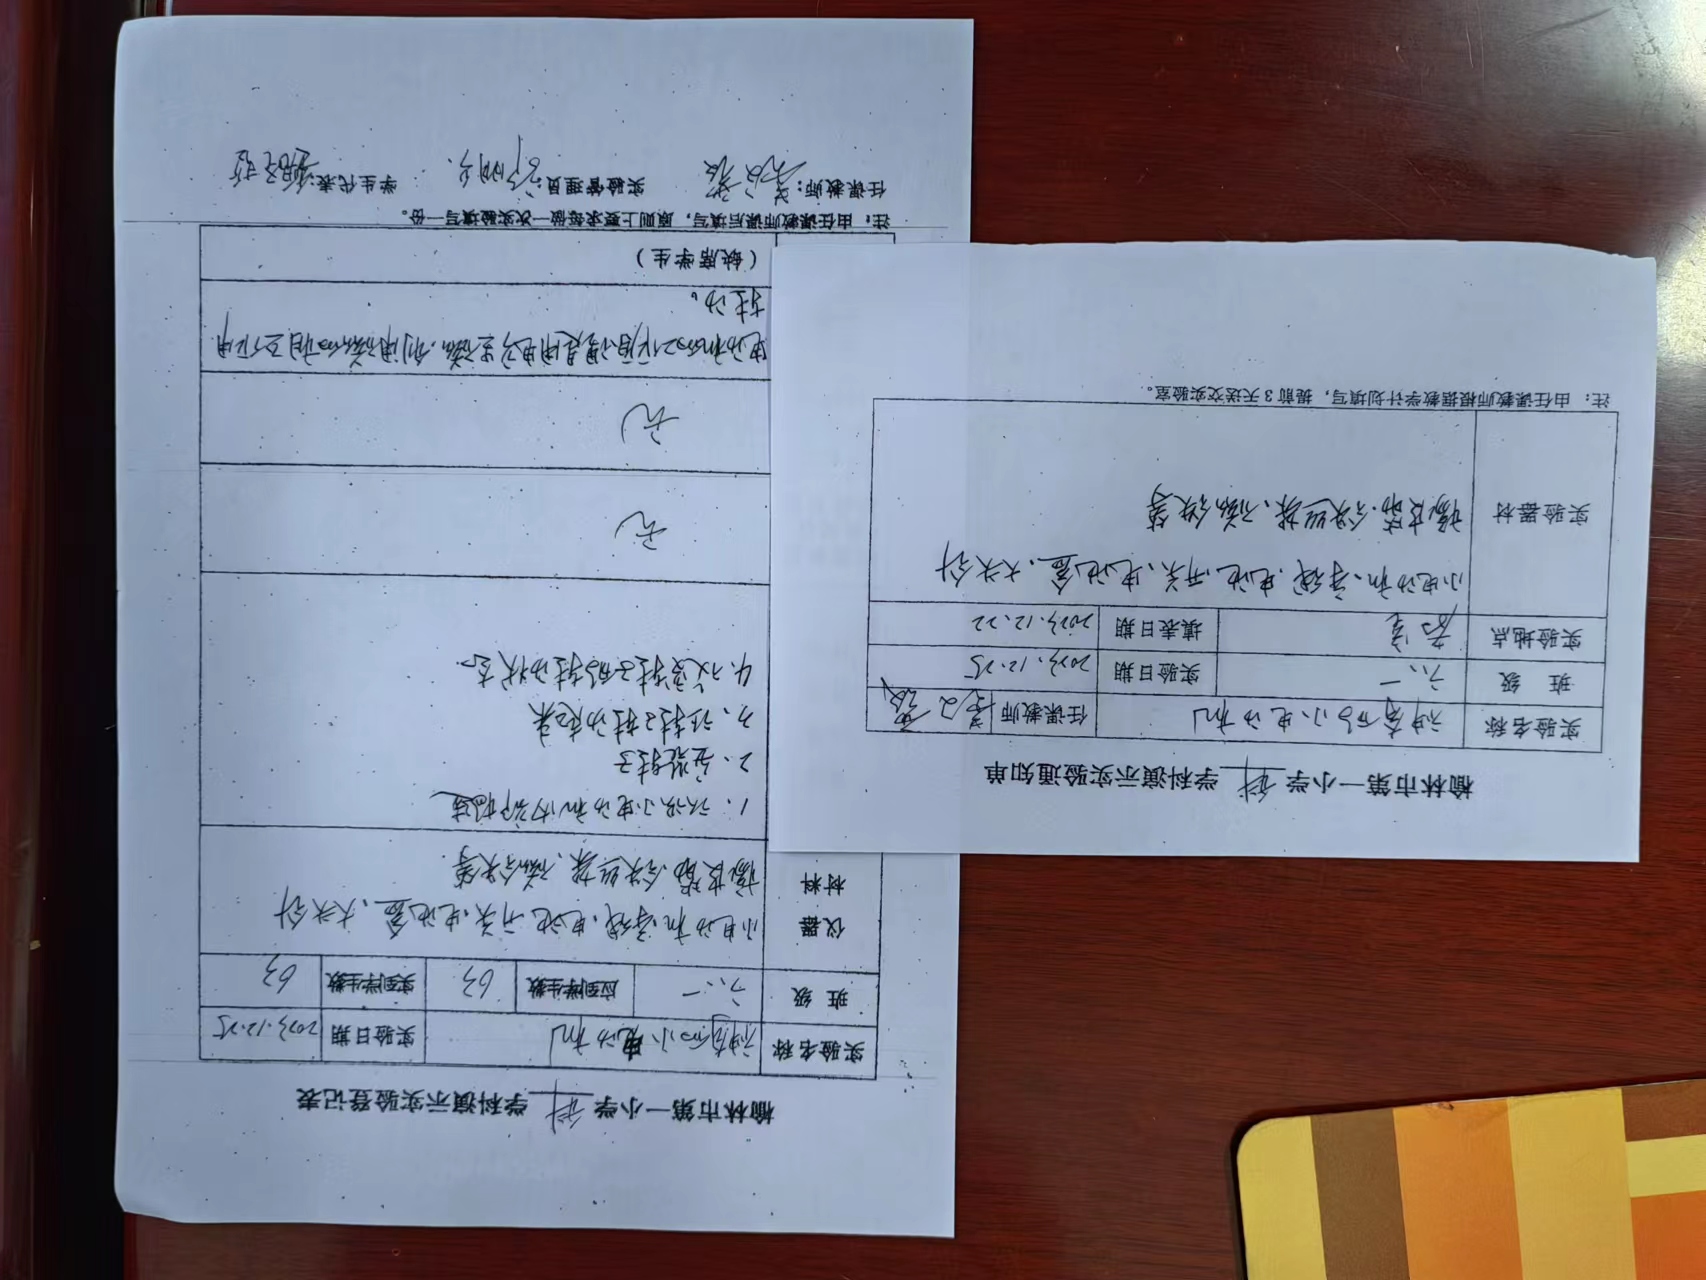 榆林市第一小学 科 学科演示实验登记表
实验名称 神奇的小电动机 实验日期 2023.12.25
班 级 六.一 应到学生数 63 实到学生数 63
仪器材料 小电动机、导线、电池、开关、电池盒、大头针
橡皮筋、铁丝探、磁铁等
1、认识小电动机内部构造
2、安装转子
3、让转子转动起来
4、改变转子的转动状态.
无
无
电动机的工作原理是用电产生磁,利用磁的相互作用
转动。
(缺席学生)
注:由任课教师课后填写,原则上要求每做一次实验填写一份。
任课教师: 实验管理员: 学生代表:
榆林市第一小学 科 学科演示实验通知单
实验名称 神奇的小电动机 任课教师
班 级 六.一 实验日期 2023.12.25
实验地点 教室 填表日期 2023.12.22
实验器材 小电动机、导线、电池、开关、电池盒、大头针
橡皮筋、铁丝探、磁铁等
注:由任课教师根据教学计划填写,提前3天送交实验室。